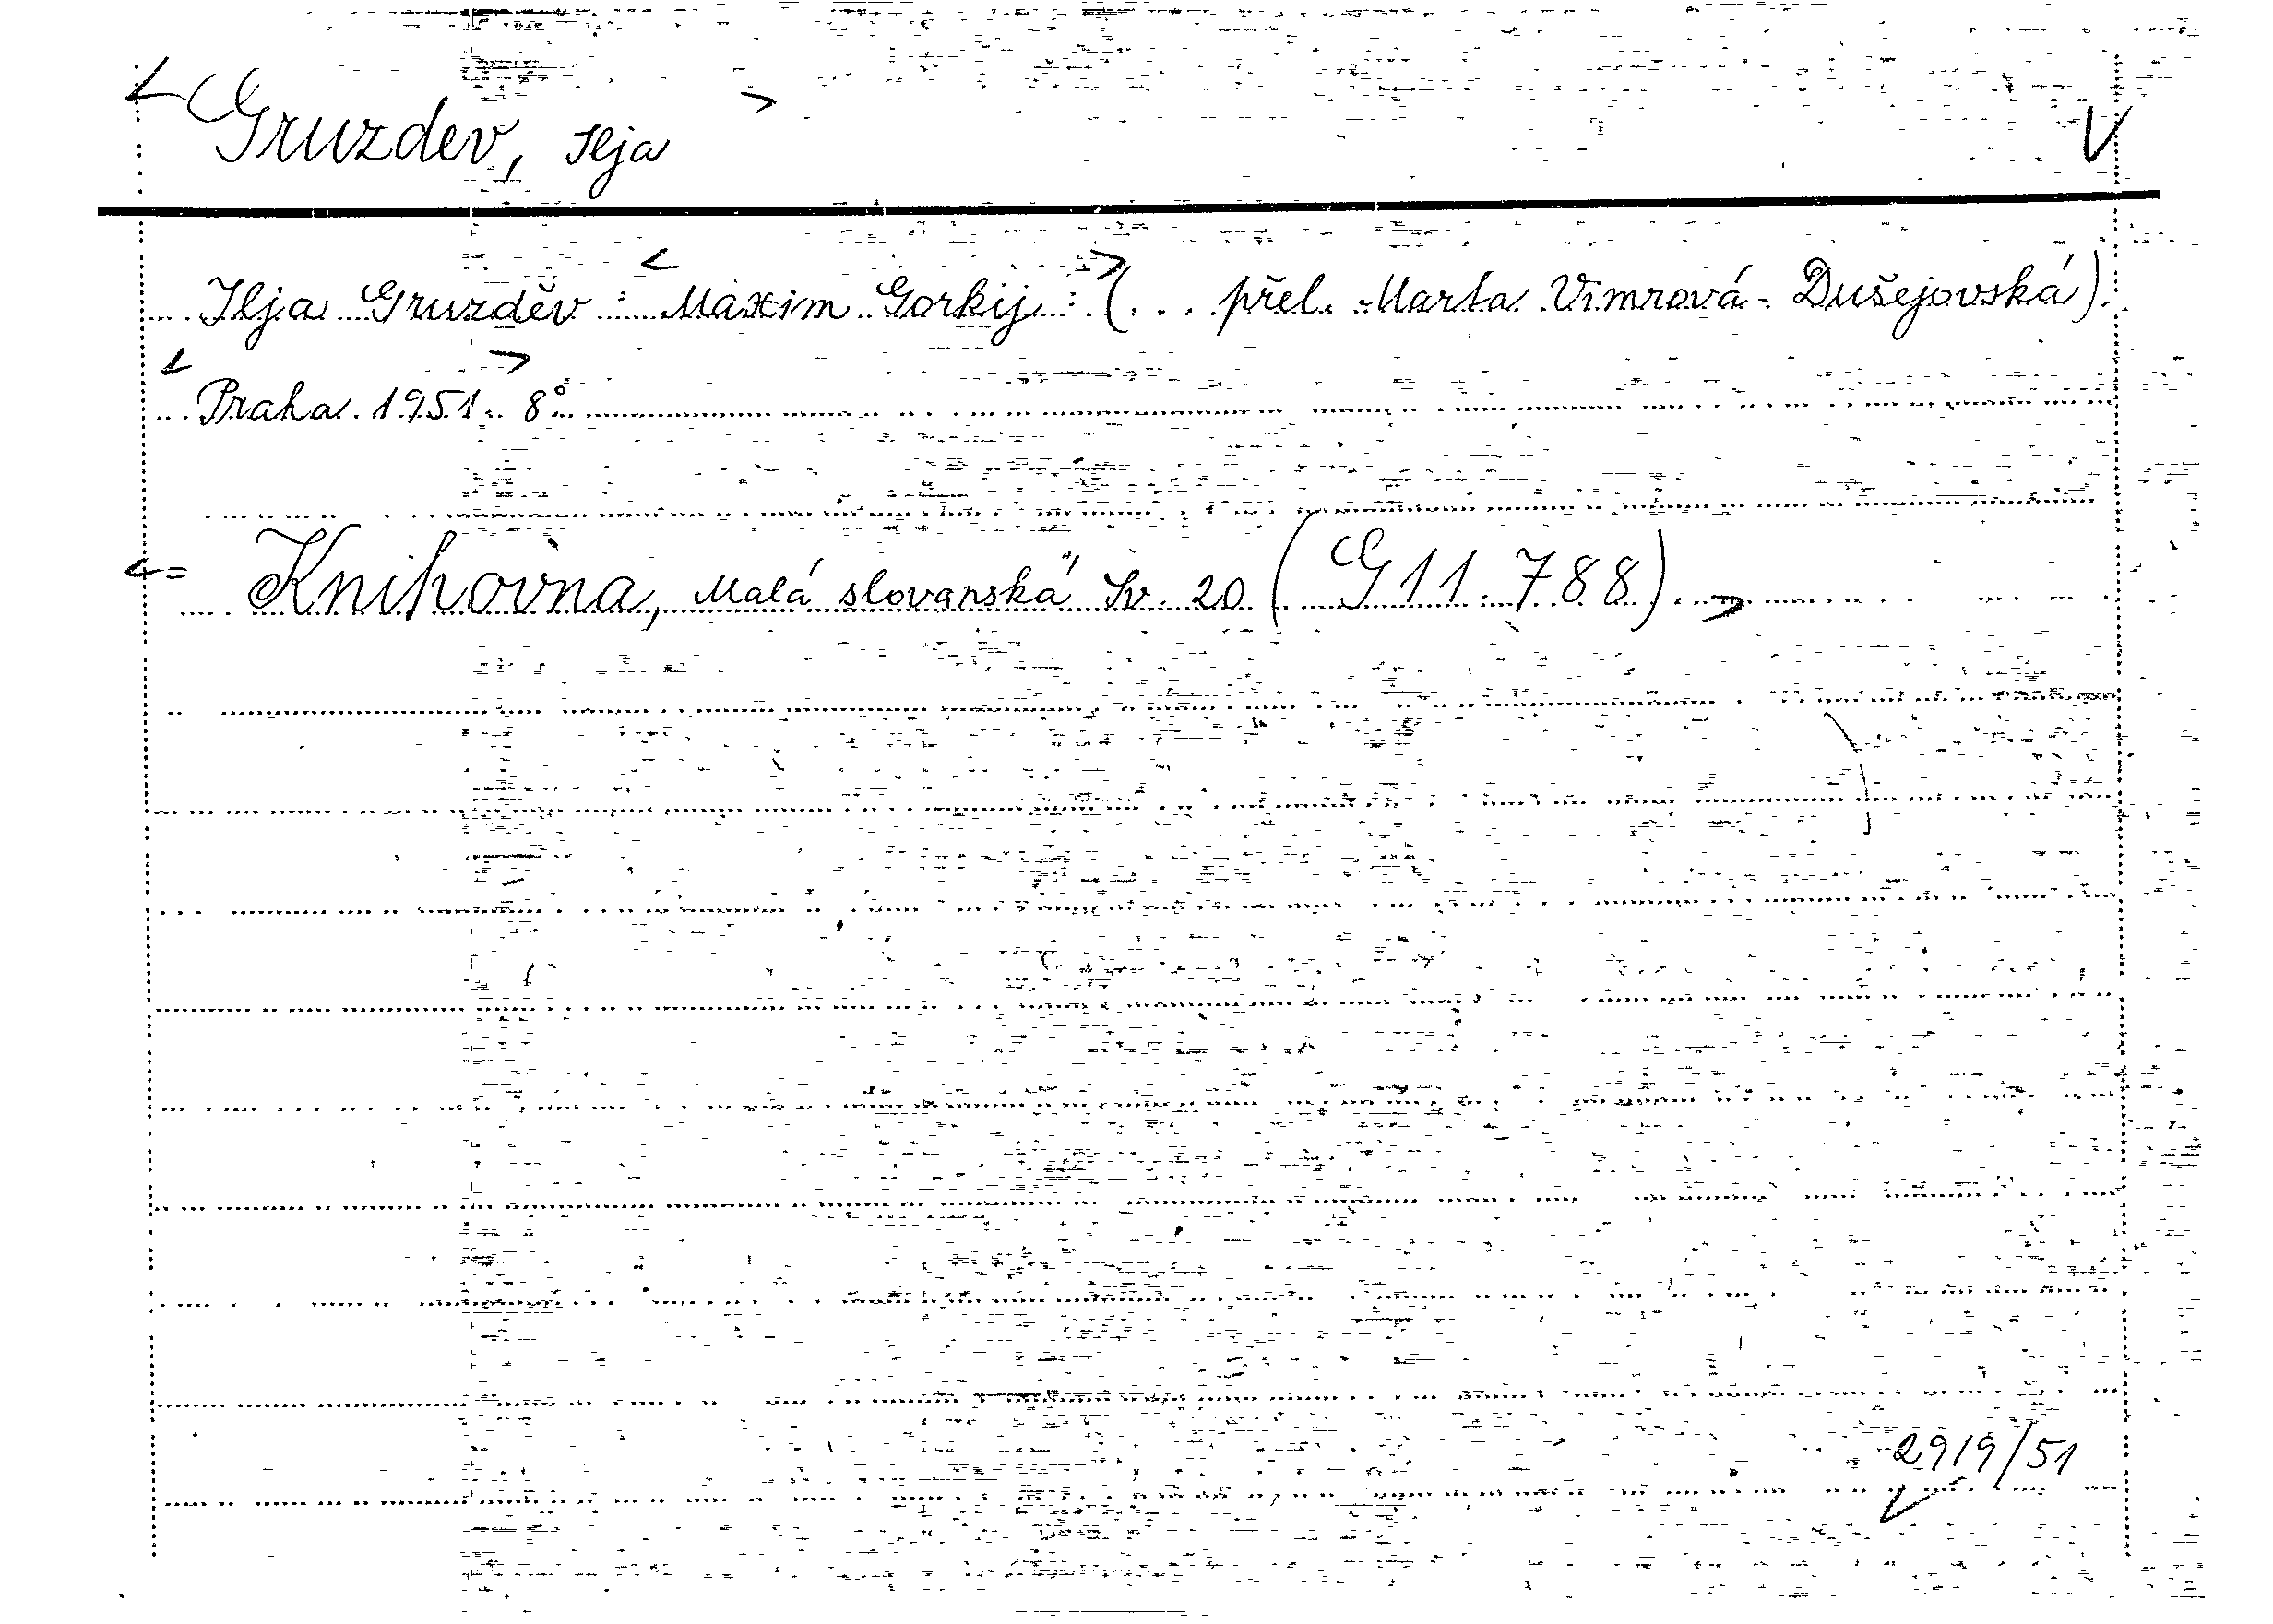 Gruzdev, Ilja
Ilja Gruzděv : Maxim Gorkij : (... přel. Marta Vimrová - Dušejovská).
Praha 1951. 8°
= Knihovna, Malá slovanská Sv. 20 (G 11.788).
2919/51